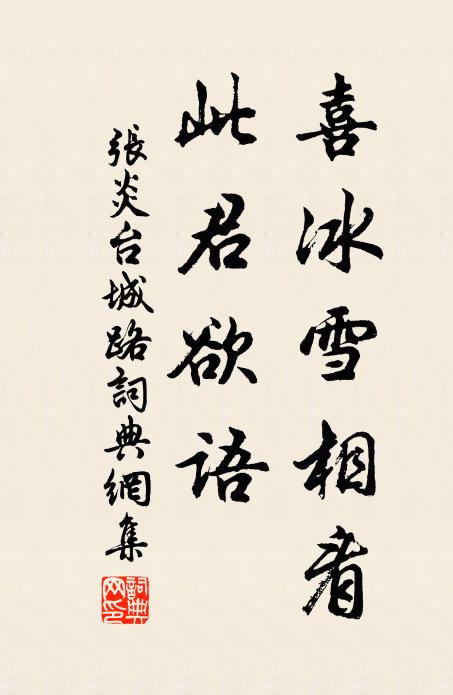 喜冰雪相看
此君欲語
張炎台城路詞典網集
詞典網印